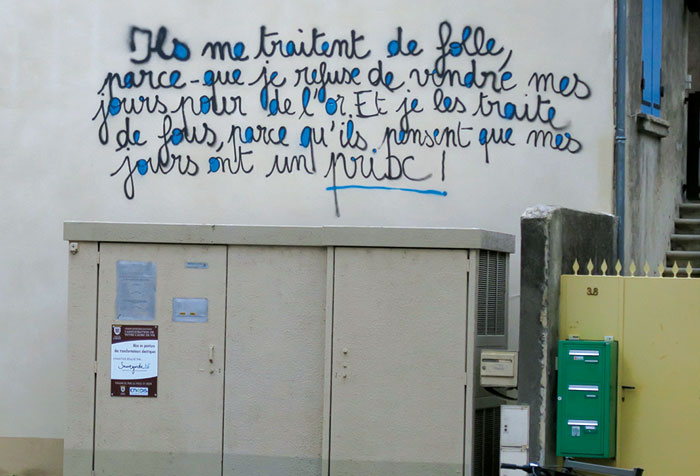 Ils me traitent de folle,
parce-que je refuse de vendre mes
jours pour de l'or. Et je les traite
de fous, parce qu'ils pensent que mes
jours ont un prix !
38
Mise en peinture